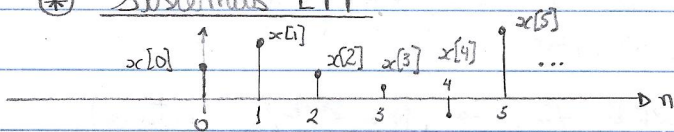 * Sistemas LTI
x[0] x[1] x[2] x[3] x[4] x[5] ...
0 1 2 3 4 5 n